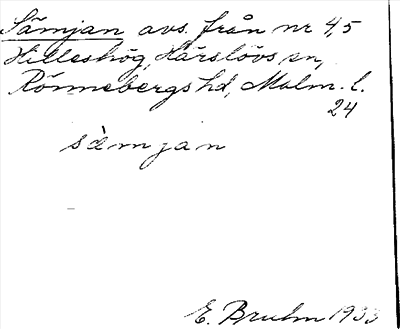 Sämjan avs. från nr 4,5
Hilleshög, Härslövs sn,
Rönnebergs hd, Malm. l.
24
sàmjan
E. Bruhn 1933